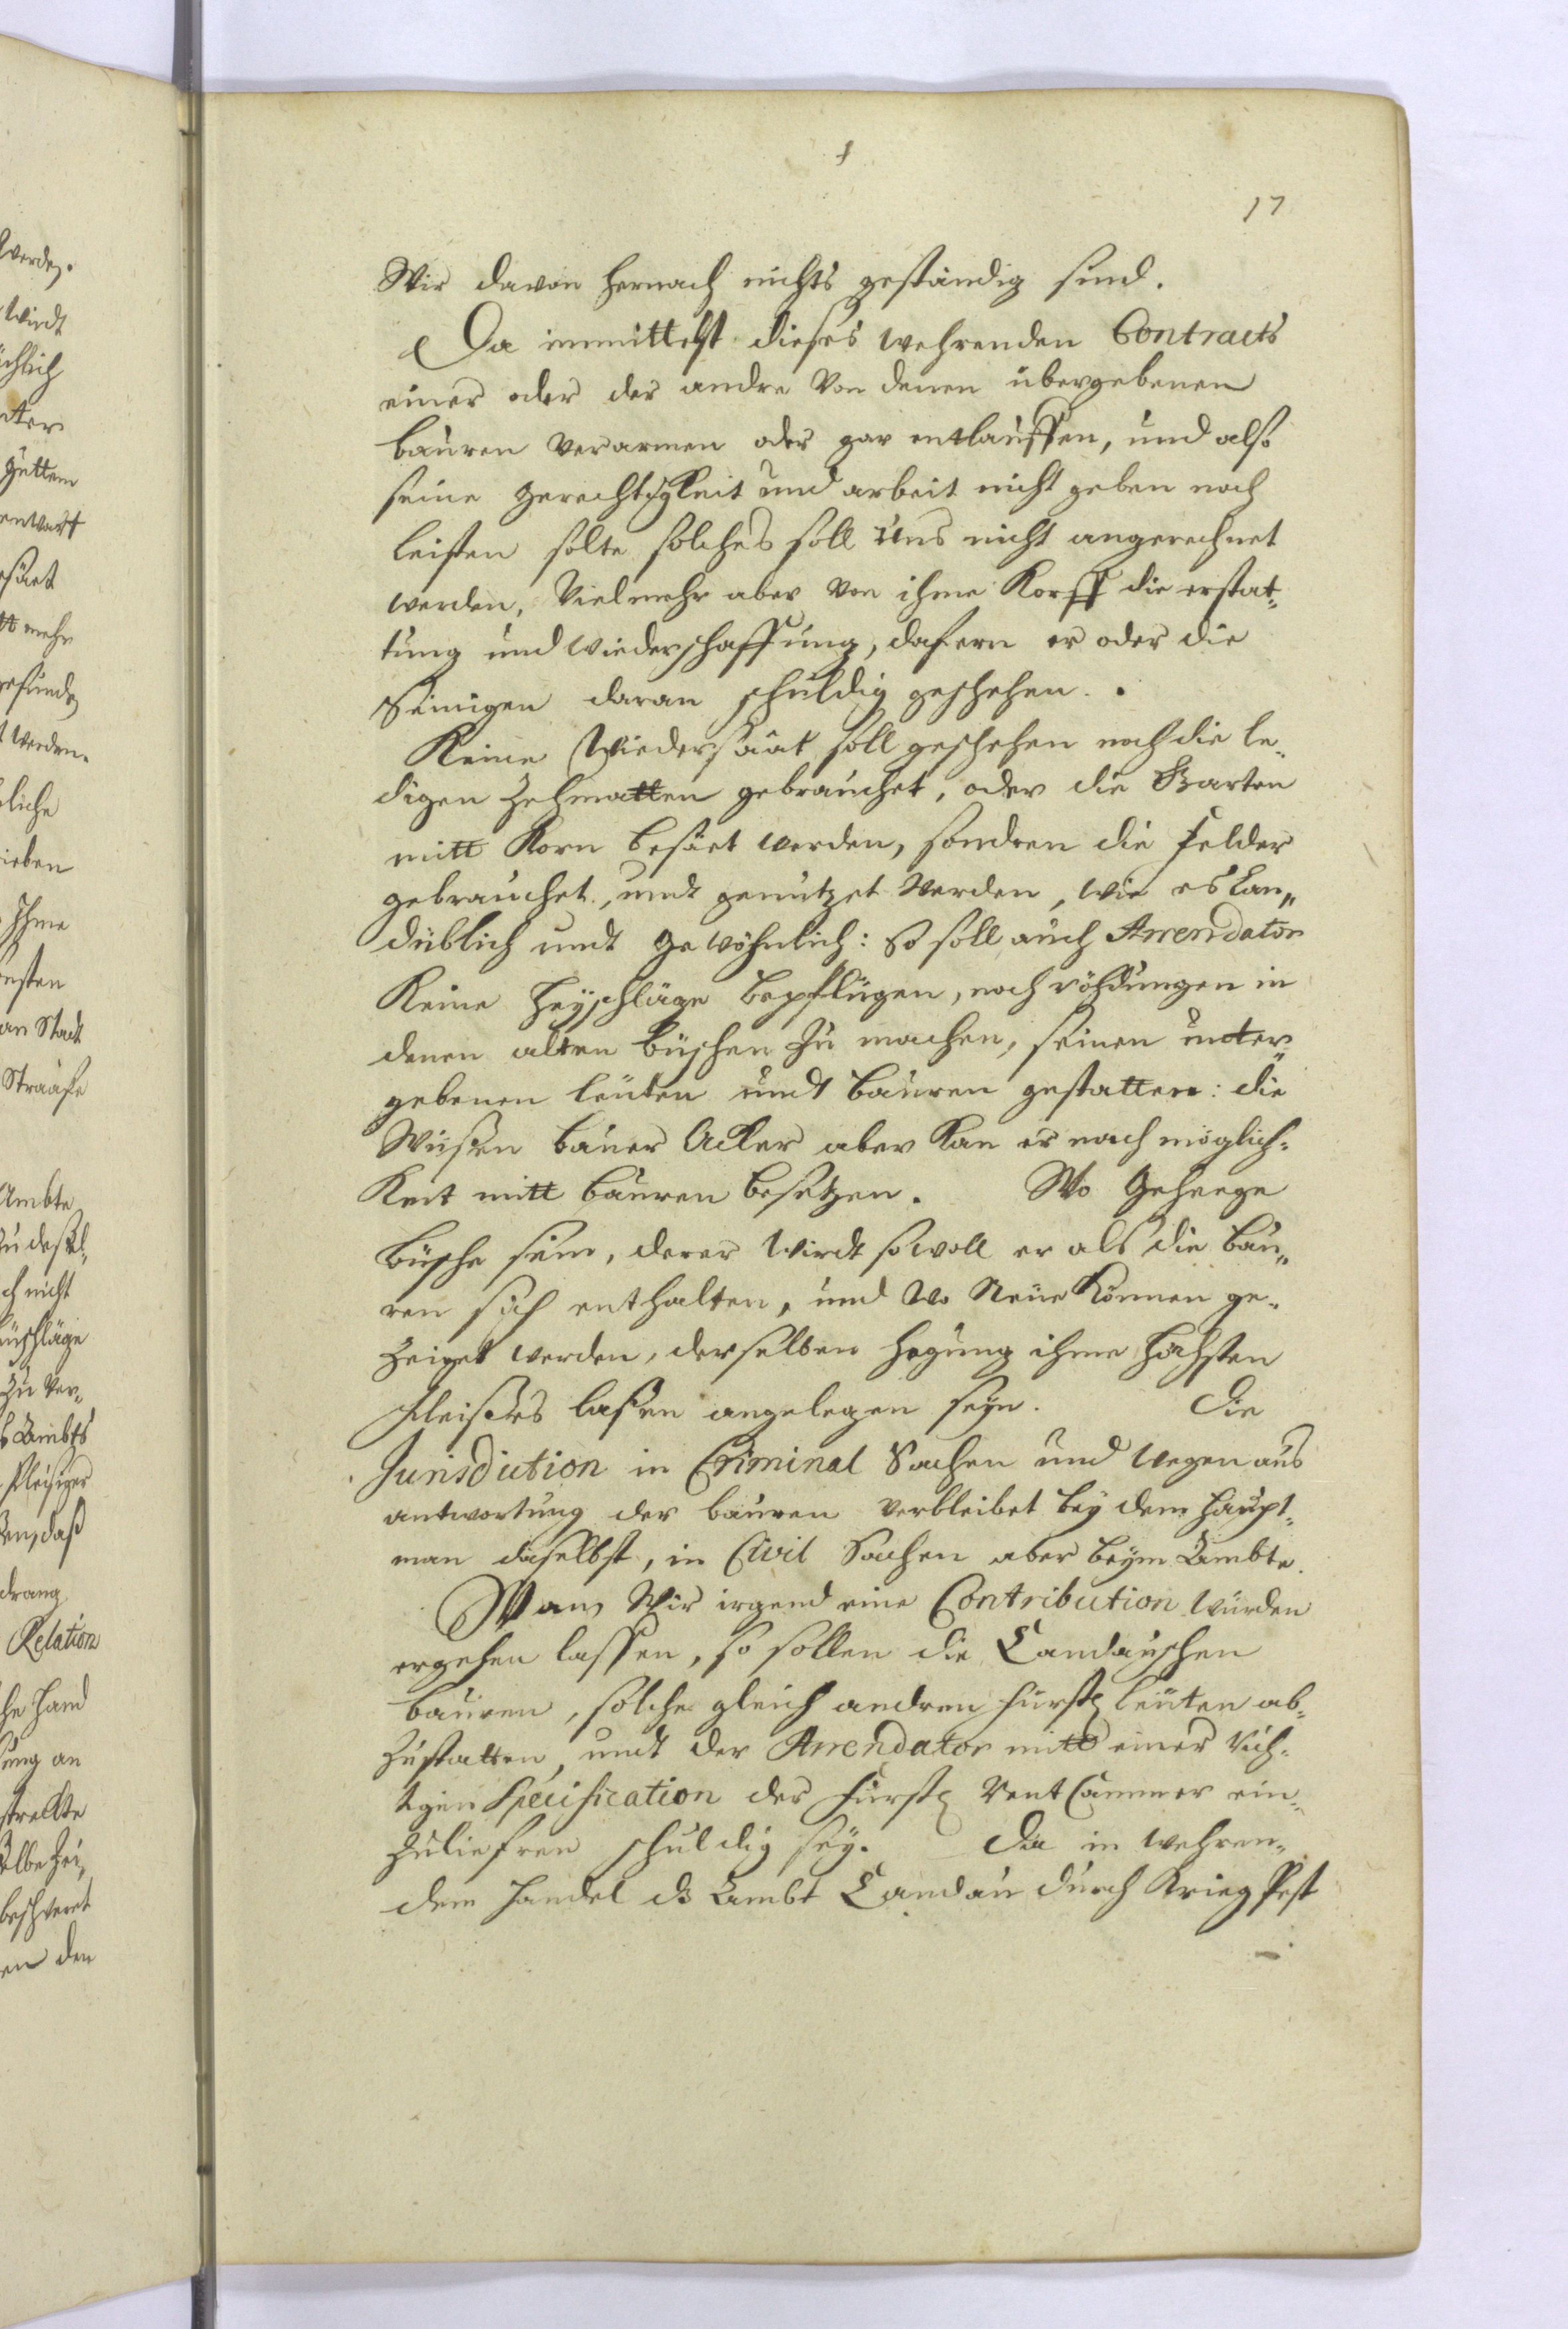 17
Wir davon hernach nichts geständig sind.
Da immittelst dieses wehrenden Contracts
einer oder der andre von denen übergebenen
bauren verarmen oder gar entlauffen, und also
seine gerechtigkeit und arbeit nicht geben noch
leisten solte solches soll Uns nicht angerechnet
werden, Vielmehr aber von ihme Korff die erstat-
tung und wiederschaffung, dafern er oder die
Seinigen daran schuldig geschehen.
Keine Wiedersaat soll geschehen noch die le-
digen gebrauchet, oder die Garten
mitt Korn besäet werden, sondren die felder
gebrauchet, undt genützet werden, wie es Lan„
düblich undt gewöhnlich: so soll auch Arrendator
Keine Heyschläge bepflügen, noch röhdungen in
denen alten büschen zu machen, seinen unter-
gebenen leüten undt bauren gestatten: die
Wüsten baüer Acker aber Kan er nach möglich-
Keit mitt bauren besetzen. Wo Geheege
büsche sein, derer wirdt sowoll er als die bau„
ren sich enthalten, und wo Neüe Können ge-
Zeiget werden, derselben hegung ihme höchsten
fleißes laßen angelegen seyn. Die
Jurisdiction in Criminal Sachen und wegen aus
antwortung der bauren verbleibet bey dem Haupt-
man daselbst, in Civil Sachen aber beym Ambte.
Wan Wir irgend eine Contribution würden
ergehen lassen, so sollen die Candauschen
bauren, solche gleich andren fürstl leüten ab-
zustatten, undt der Arrendator mitt einer rich-
tigen Specification der fürstl Rent Cammer ein-
zuliefren schuldig sey. Da in wehren-
dem Handel ds Ambt Candau durch Krieg Pest